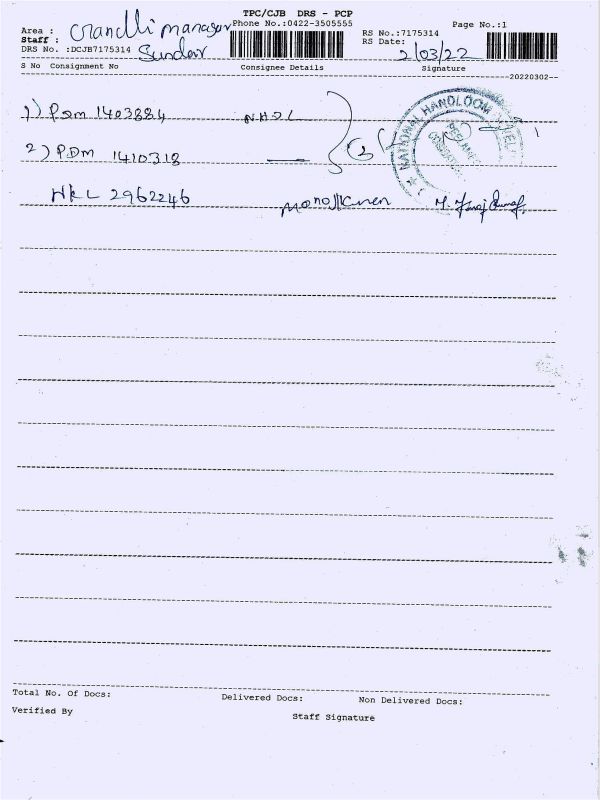 TPC/CJB DRS - PCP
Area : Phone No.:0422-3505555 Page No.:1
Staff : Sundar RS No.:7175314
DRS No. :DCJB7175314 RS Date: 2/03/22
S No Consignment No Consignee Details Signature
20220302--
1) PDM 1403884 NHDC
2) PDM 1410318
HKL 2962246
NATIONAL HANDLOOM
Total No. Of Docs: Delivered Docs: Non Delivered Docs:
Verified By Staff Signature